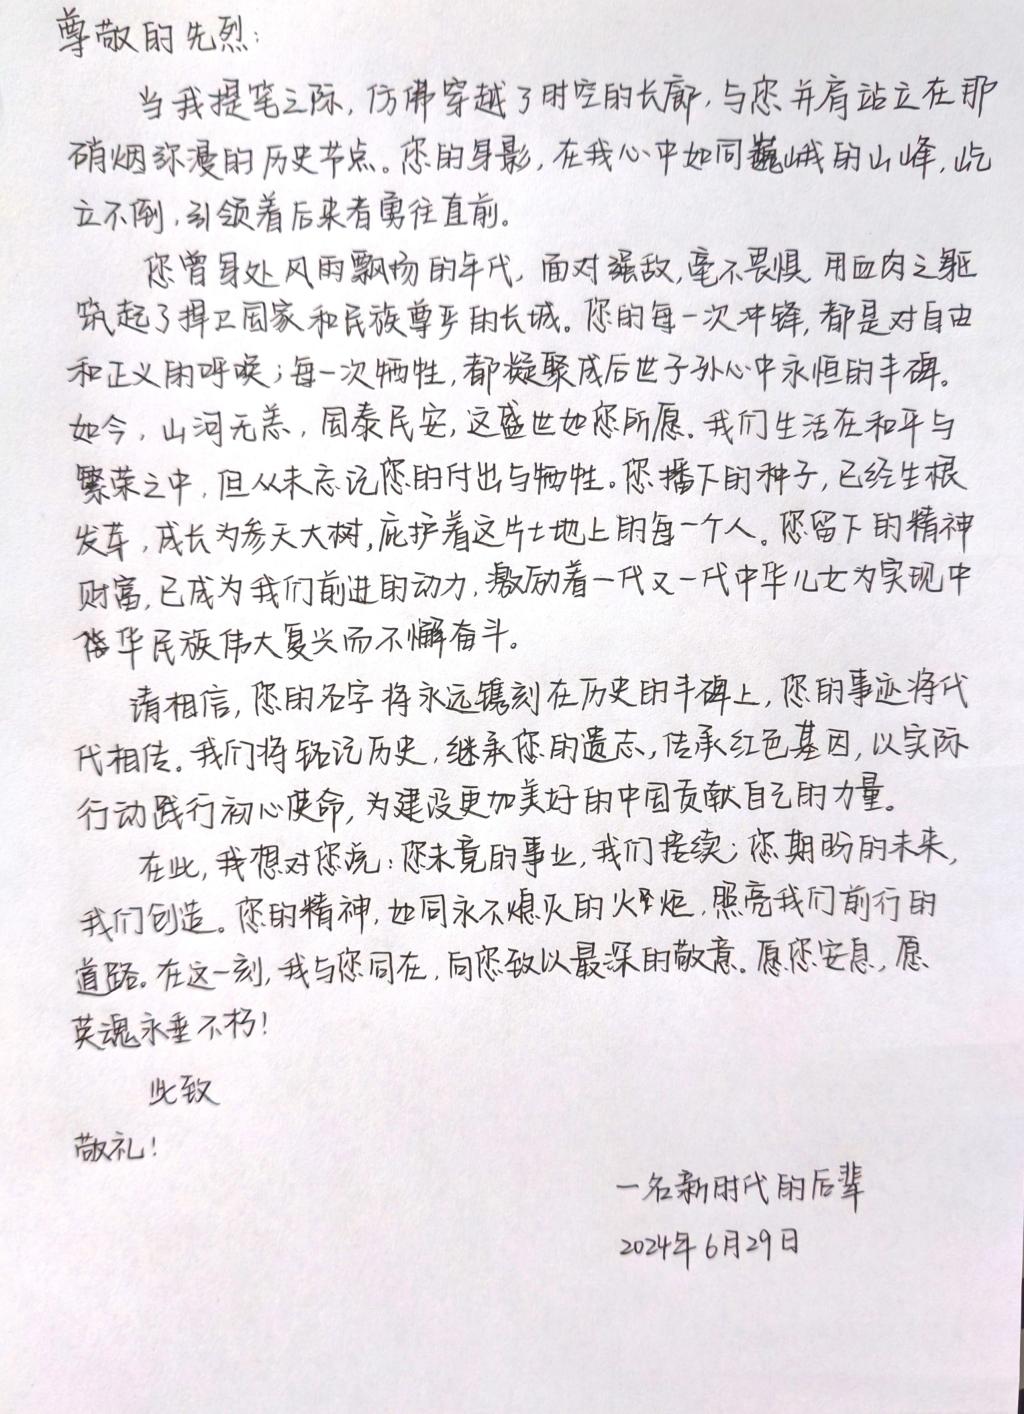 尊敬的先烈：
当我提笔之际，仿佛穿越了时空的长廊，与您并肩站立在那
硝烟弥漫的历史节点。您的身影，在我心中如同巍峨的山峰，屹
立不倒，引领着后来者勇往直前。
您曾身处风雨飘扬的年代，面对强敌，毫不畏惧，用血肉之躯
筑起了捍卫国家和民族尊严的长城。您的每一次冲锋，都是对自由
和正义的呼唤；每一次牺牲，都凝聚成后世子孙心中永恒的丰碑。
如今，山河无恙，国泰民安，这盛世如您所愿。我们生活在和平与
繁荣之中，但从未忘记您的付出与牺牲。您播下的种子，已经生根
发芽，成长为参天大树，庇护着这片土地上的每一个人。您留下的精神
财富，已成为我们前进的动力，激励着一代又一代中华儿女为实现中
华民族伟大复兴而不懈奋斗。
请相信，您的名字将永远镌刻在历史的丰碑上，您的事迹将代
代相传。我们将铭记历史，继承您的遗志，传承红色基因，以实际
行动践行初心使命，为建设更加美好的中国贡献自己的力量。
在此，我想对您说：您未竟的事业，我们接续；您期盼的未来，
我们创造。您的精神，如同永不熄灭的火炬，照亮我们前行的
道路。在这一刻，我与您同在，向您致以最深的敬意。愿您安息，愿
英魂永垂不朽！
此致
敬礼！
一名新时代的后辈
2024年6月29日